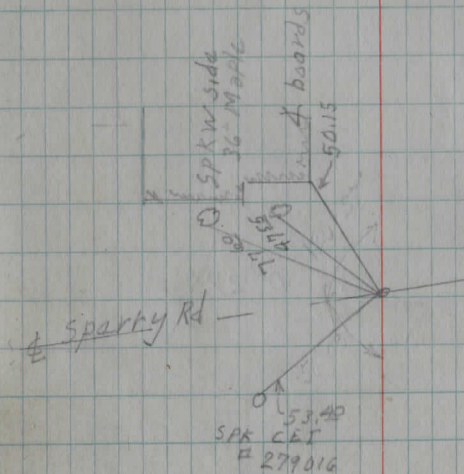 SPK W side
36" Maple
boards
50.15
47.55
Sparky Rd
53.40
SPK CEI
# 279016